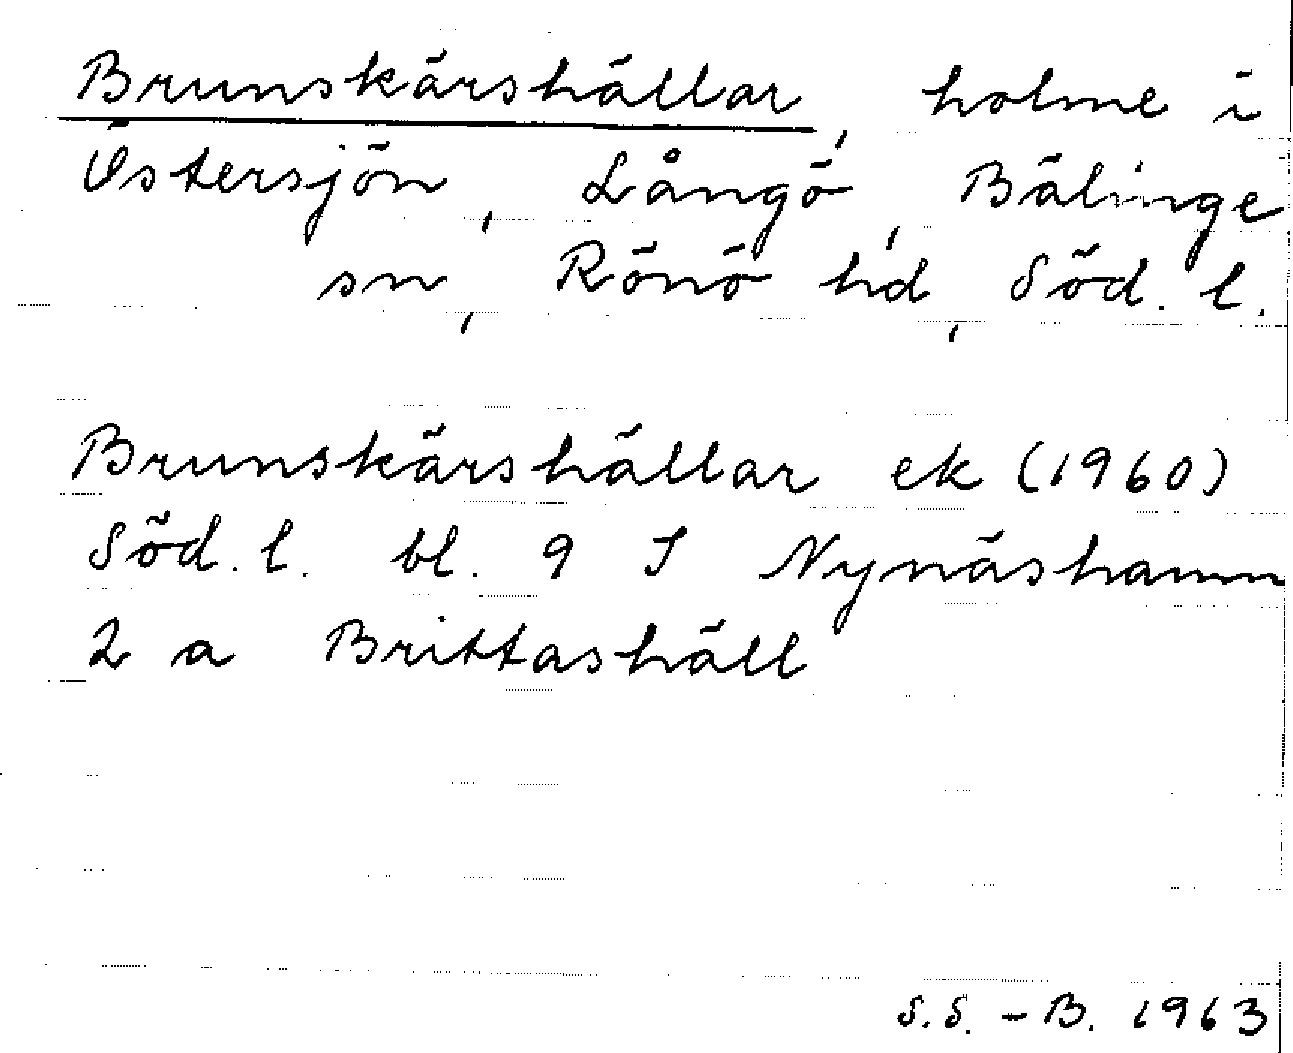 Brunskärshällar, holme i
Östersjön, Långö, Bälinge
sn, Rönö hd, Söd. l.
Brunskärshällar ek (1960)
Söd. l. bl. 9 I Nynäshamn
2 a Brittashäll
S.S. - B. 1963